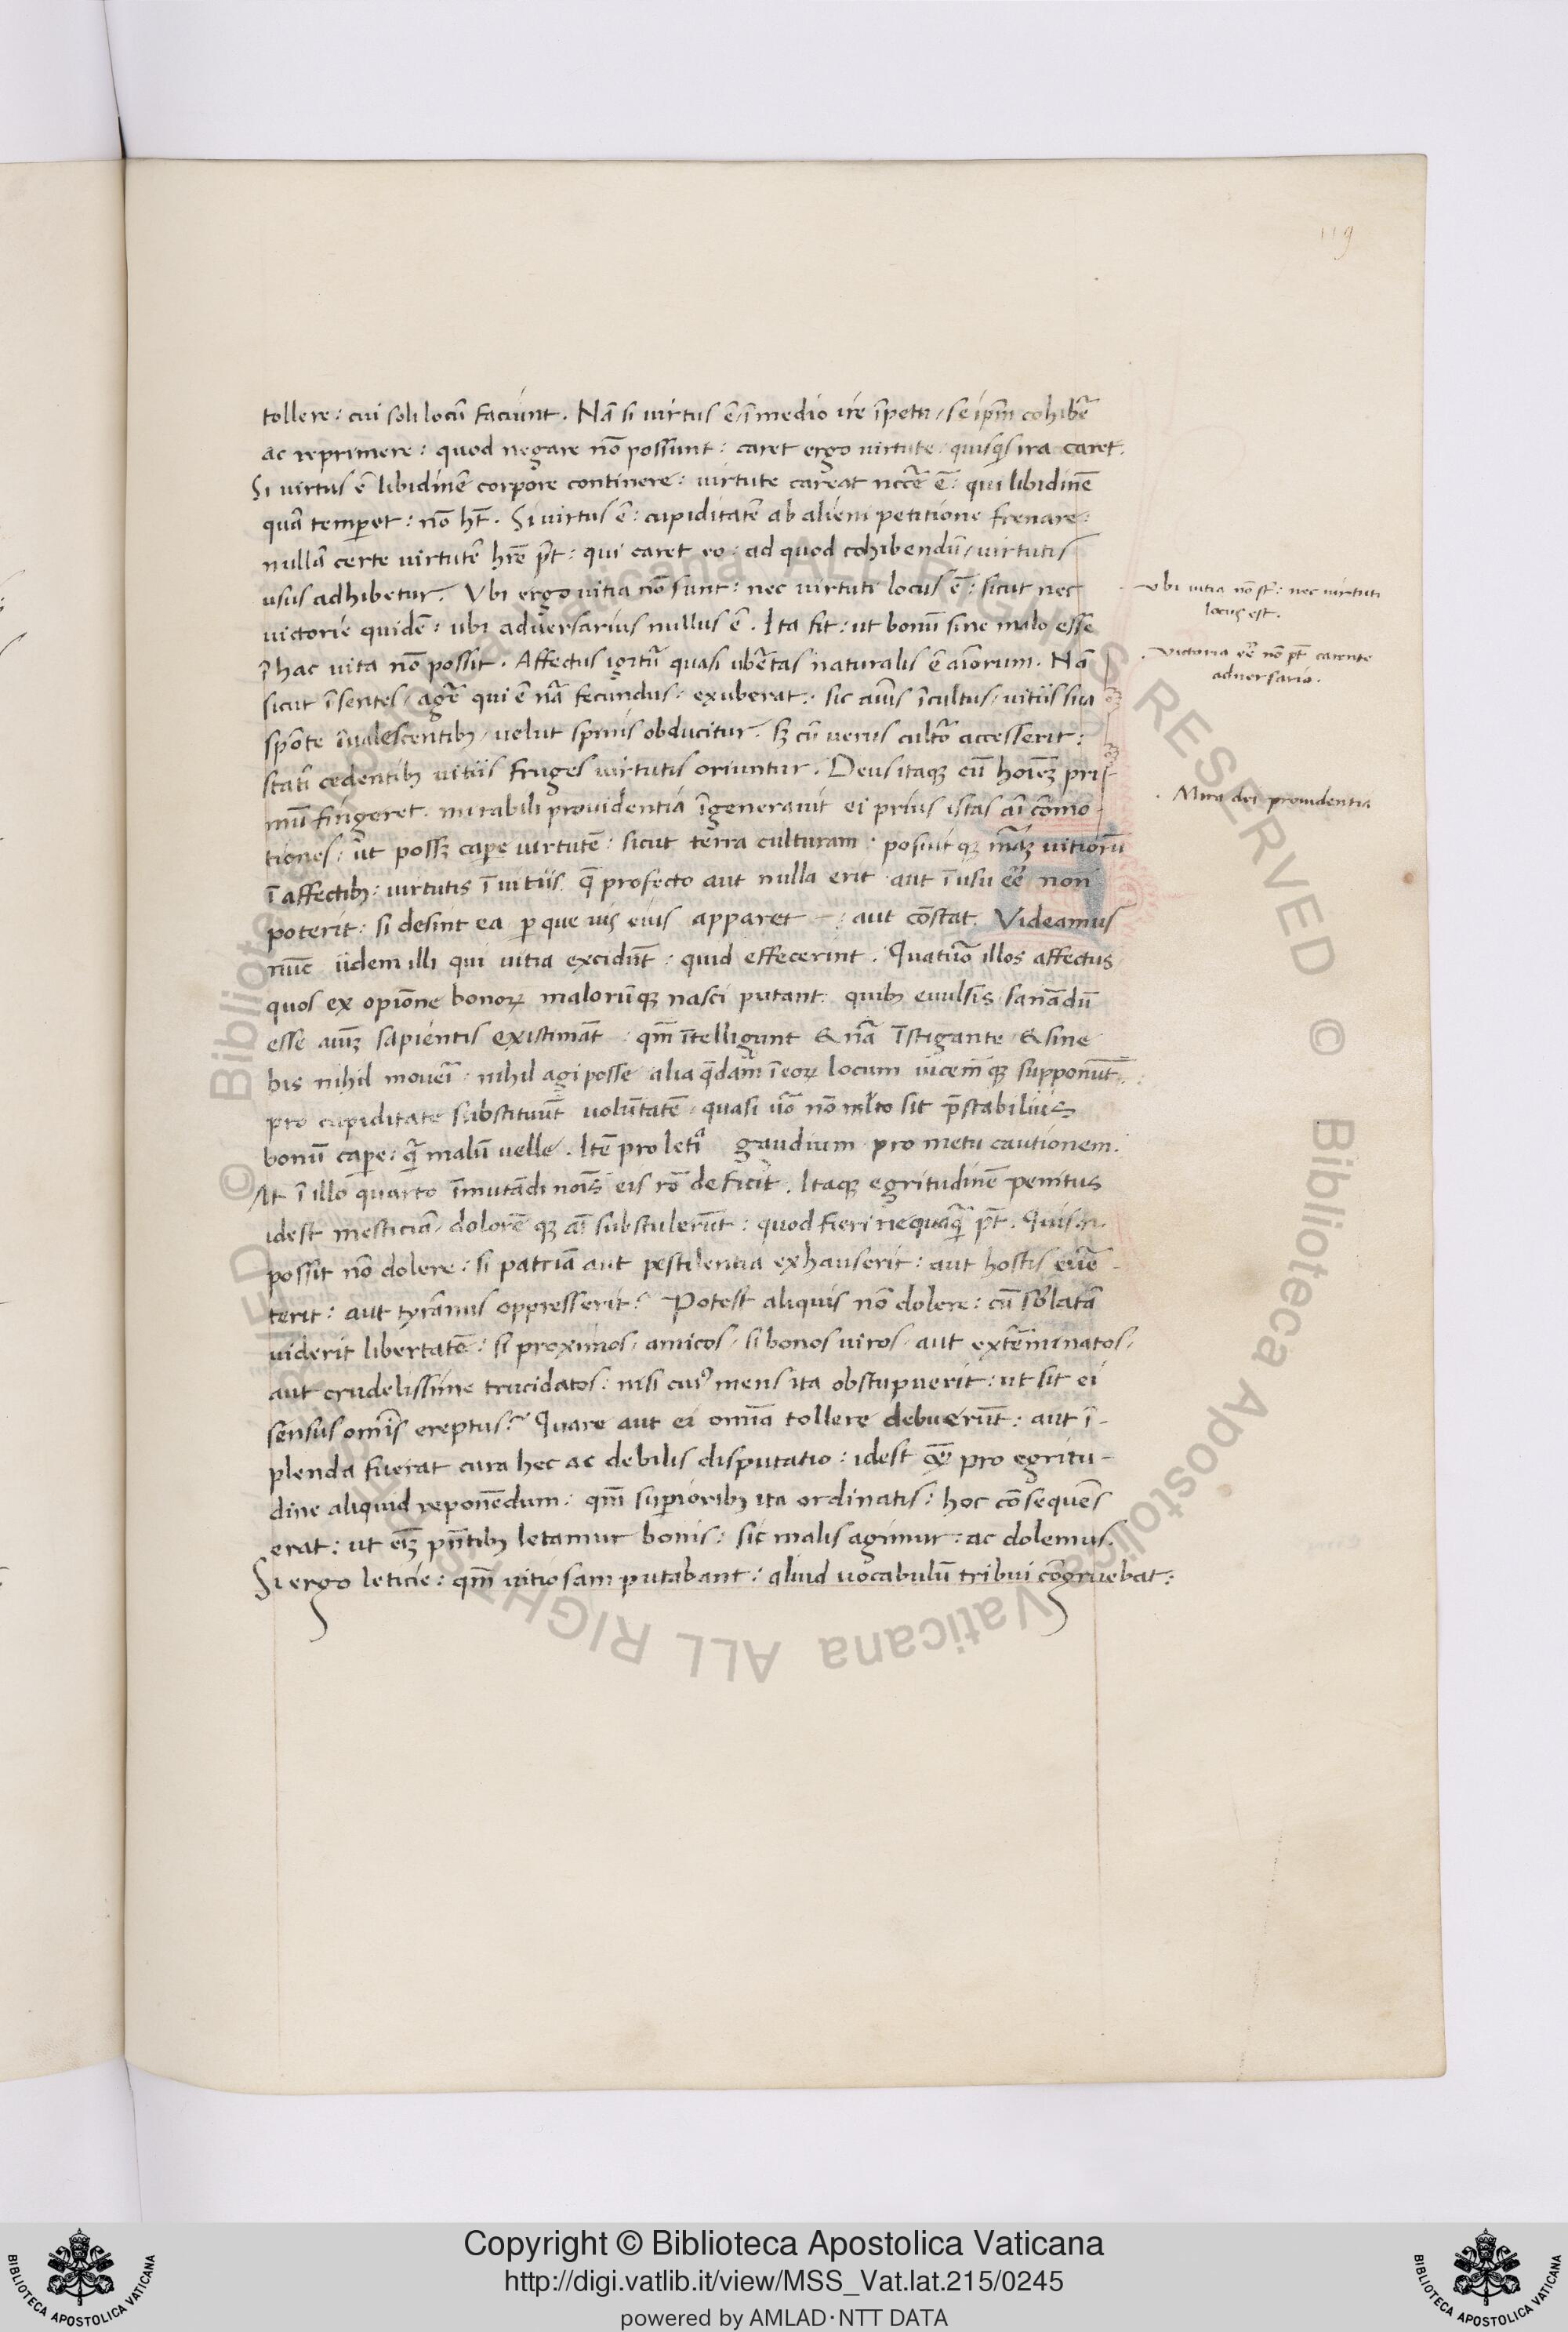 119
tollere: cui soli locũ faciunt. Nã si virtus ẽ, ĩ medio ire ĩpetu, se ipm̃ cohibẽ
ac reprimere: quod negare nõ possunt: caret ergo virtute quisq̃s ira caret.
Si virtus ẽ libidinẽ corpore continere: virtute careat nccẽ ẽ: qui libidinẽ
quã temp̱et: nõ ht̃. Si virtus ẽ: cupiditatẽ ab alieni petitione frenare:
nullã certe virtutẽ hrẽ pt̃: qui caret eo: ad quod cohibendũ, virtutis
usus adhibetur. Vbi ergo vitia nõ sunt: nec virtuti locus ẽ: sicut nec
victorie quidẽ: ubi adversarius nullus ẽ. Ita fit: ut bonũ sine malo esse
ĩ hac vita nõ possit. Affectus igitũ quasi ubẽtas naturalis ẽ aiõrum. Nã
sicut ĩ sentes, agẽ qui ẽ nã fecundus, exuberat: sic aiũs ĩcultus, vitiis sua
spõte ĩvalescentibꝫ, velut spinis obducitur. Sꝫ cũ verus cultõ accesserit:
statĩ cedentibꝫ vitiis fruges virtutis oriuntur. Deus itaqꝫ cũ hoiẽꝫ pri-
mũ fingeret. mirabili providentia ĩgeneravit ei prius istas ai cõmo-
tiones: ut possꝫ cape virtutẽ: sicut terra culturam. posuit qꝫ mãꝫ vitiorũ
ĩ affectibꝫ: virtutis ĩ vitiis. q̃ profecto aut nulla erit aut ĩ usu eẽ non
poterit: si desint ea p̱ que vis eius apparet : aut cõstat. Videamus
nũc iidem illi qui vitia excidũt: quid effecerint. Quatuõ illos affectus
quos ex opiõne bonoꝝ malorũqꝫ nasci putant: quibꝫ evulsis sanãdũ
esse aiũꝫ sapientis existimãt: qm̃ ĩtelligunt & nã ĩstigante & sine
his nihil movei, nihil agi posse alia q̃dam ĩ eoꝝ locum vicem̃qꝫ supponũt:
pro cupiditate substituũt volũtatẽ, quasi võ nõ ml̃to sit p̃stabilius
bonũ cape: q̃ malũ velle. Itẽ pro letiᵃ gaudium pro metu cautionem.
At ĩ illo quarto ĩmutãdi noiĩs eis rõ deficit. Itaqꝫ egritudinẽ penitus
idest mesticiã, dolorẽ qꝫ ai substulerũt: quod fieri nequaq̃ pt̃. Quis.n.
possit nõ dolere: si patriã aut pestilentia exhauserit: aut hostis evẽ-
terit: aut tyrãnus oppresserit? Potest aliquis nõ dolere: cũ sb̃latã
viderit libertatẽ: si proximos, amicos, si bonos viros, aut extẽminatos,
aut crudelissime trucidatos: nisi cui⁹ mens ita obstupuerit: ut sit ei
sensus om̃is ereptus? Quare aut ei om̃ia tollere debuerũt: aut ĩ-
plenda fuerat cura hec ac debilis disputatio: idest pro egritu-
dine aliquid reponẽdum: qm̃ sup̱ioribꝫ ita ordinatis: hoc cõsequẽs
erat: ut eiꝫ pñtibꝫ letamur bonis: sic malis agimur: ac dolemus.
Si ergo leticie: qm̃ vitiosam putabant: aliud vocabulũ tribui cõgruebat:
Vbi vitia nõ st̃: nec virtuti
locus est.
Victoria eẽ nõ pt̃ carente
adversario.
. Mira dei providentia
Copyright © Biblioteca Apostolica Vaticana
http://digi.vatlib.it/view/MSS_Vat.lat.215/0245
powered by AMLAD·NTT DATA
BIBLIOTECA APOSTOLICA VATICANA
BIBLIOTECA APOSTOLICA VATICANA
© Biblioteca Apostolica Vaticana ALL RIGHTS RESERVED © Biblioteca Apostolica Vaticana ALL RIGHTS RESERVED